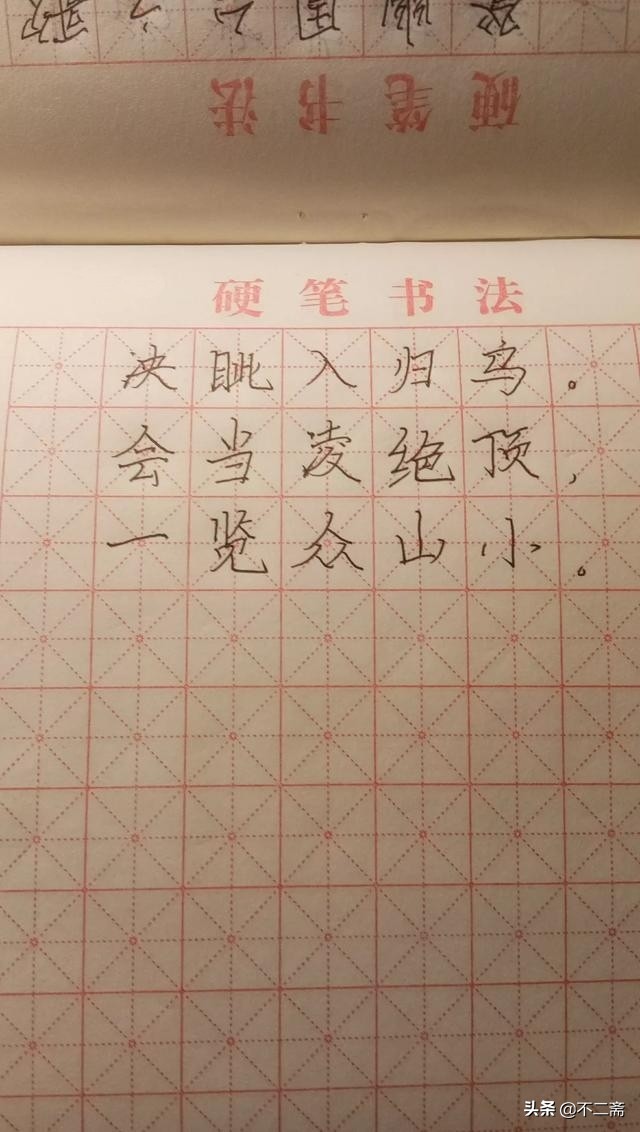 硬笔书法
硬笔书法
决眦入归鸟。
会当凌绝顶，
一览众山小。
头条 @不二斋